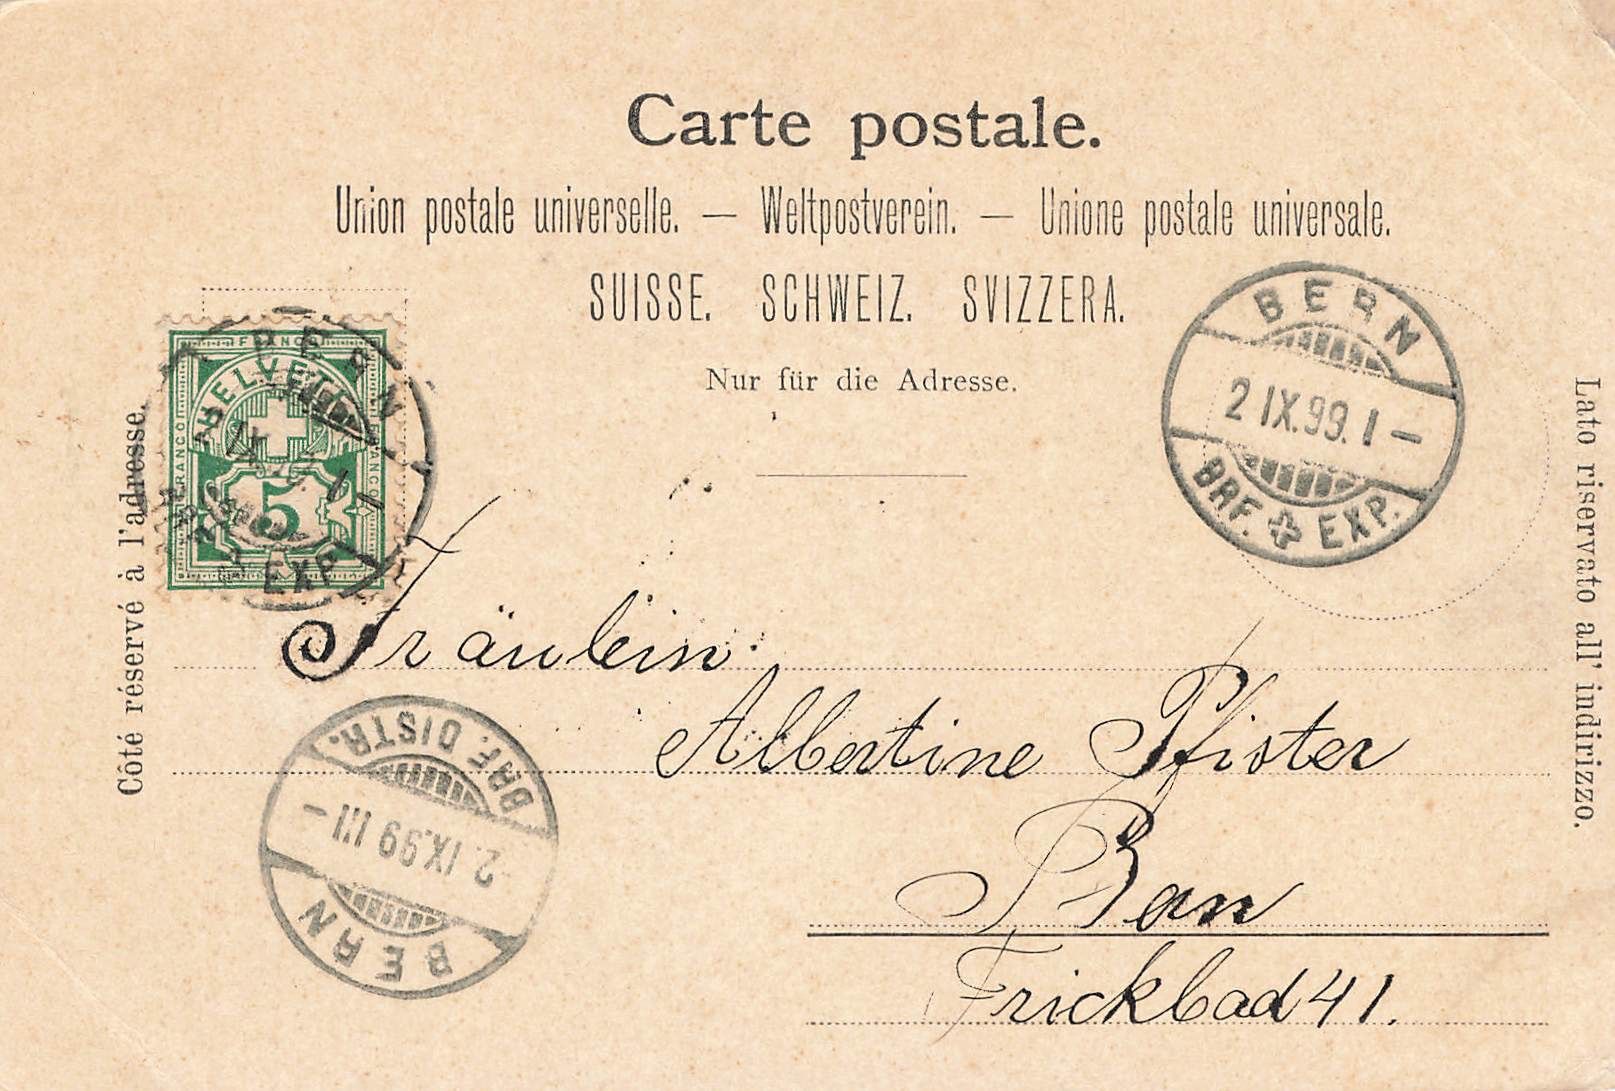 Carte postale.
Union postale universelle. — Weltpostverein. — Unione postale universale.
SUISSE. SCHWEIZ. SVIZZERA.
Nur für die Adresse.
Côté réservé à l'adresse.
Lato riservato all' indirizzo.
FRANCO
HELVETIA
FRANCO
FRANCO
5
BERN
IX
EXP.
BERN
2 IX.99. I –
BRF. EXP.
Fräulein
Albertine Pfister
Bern
Frickbad 41.
BRF. DISTR.
2. IX.99 III –
BERN